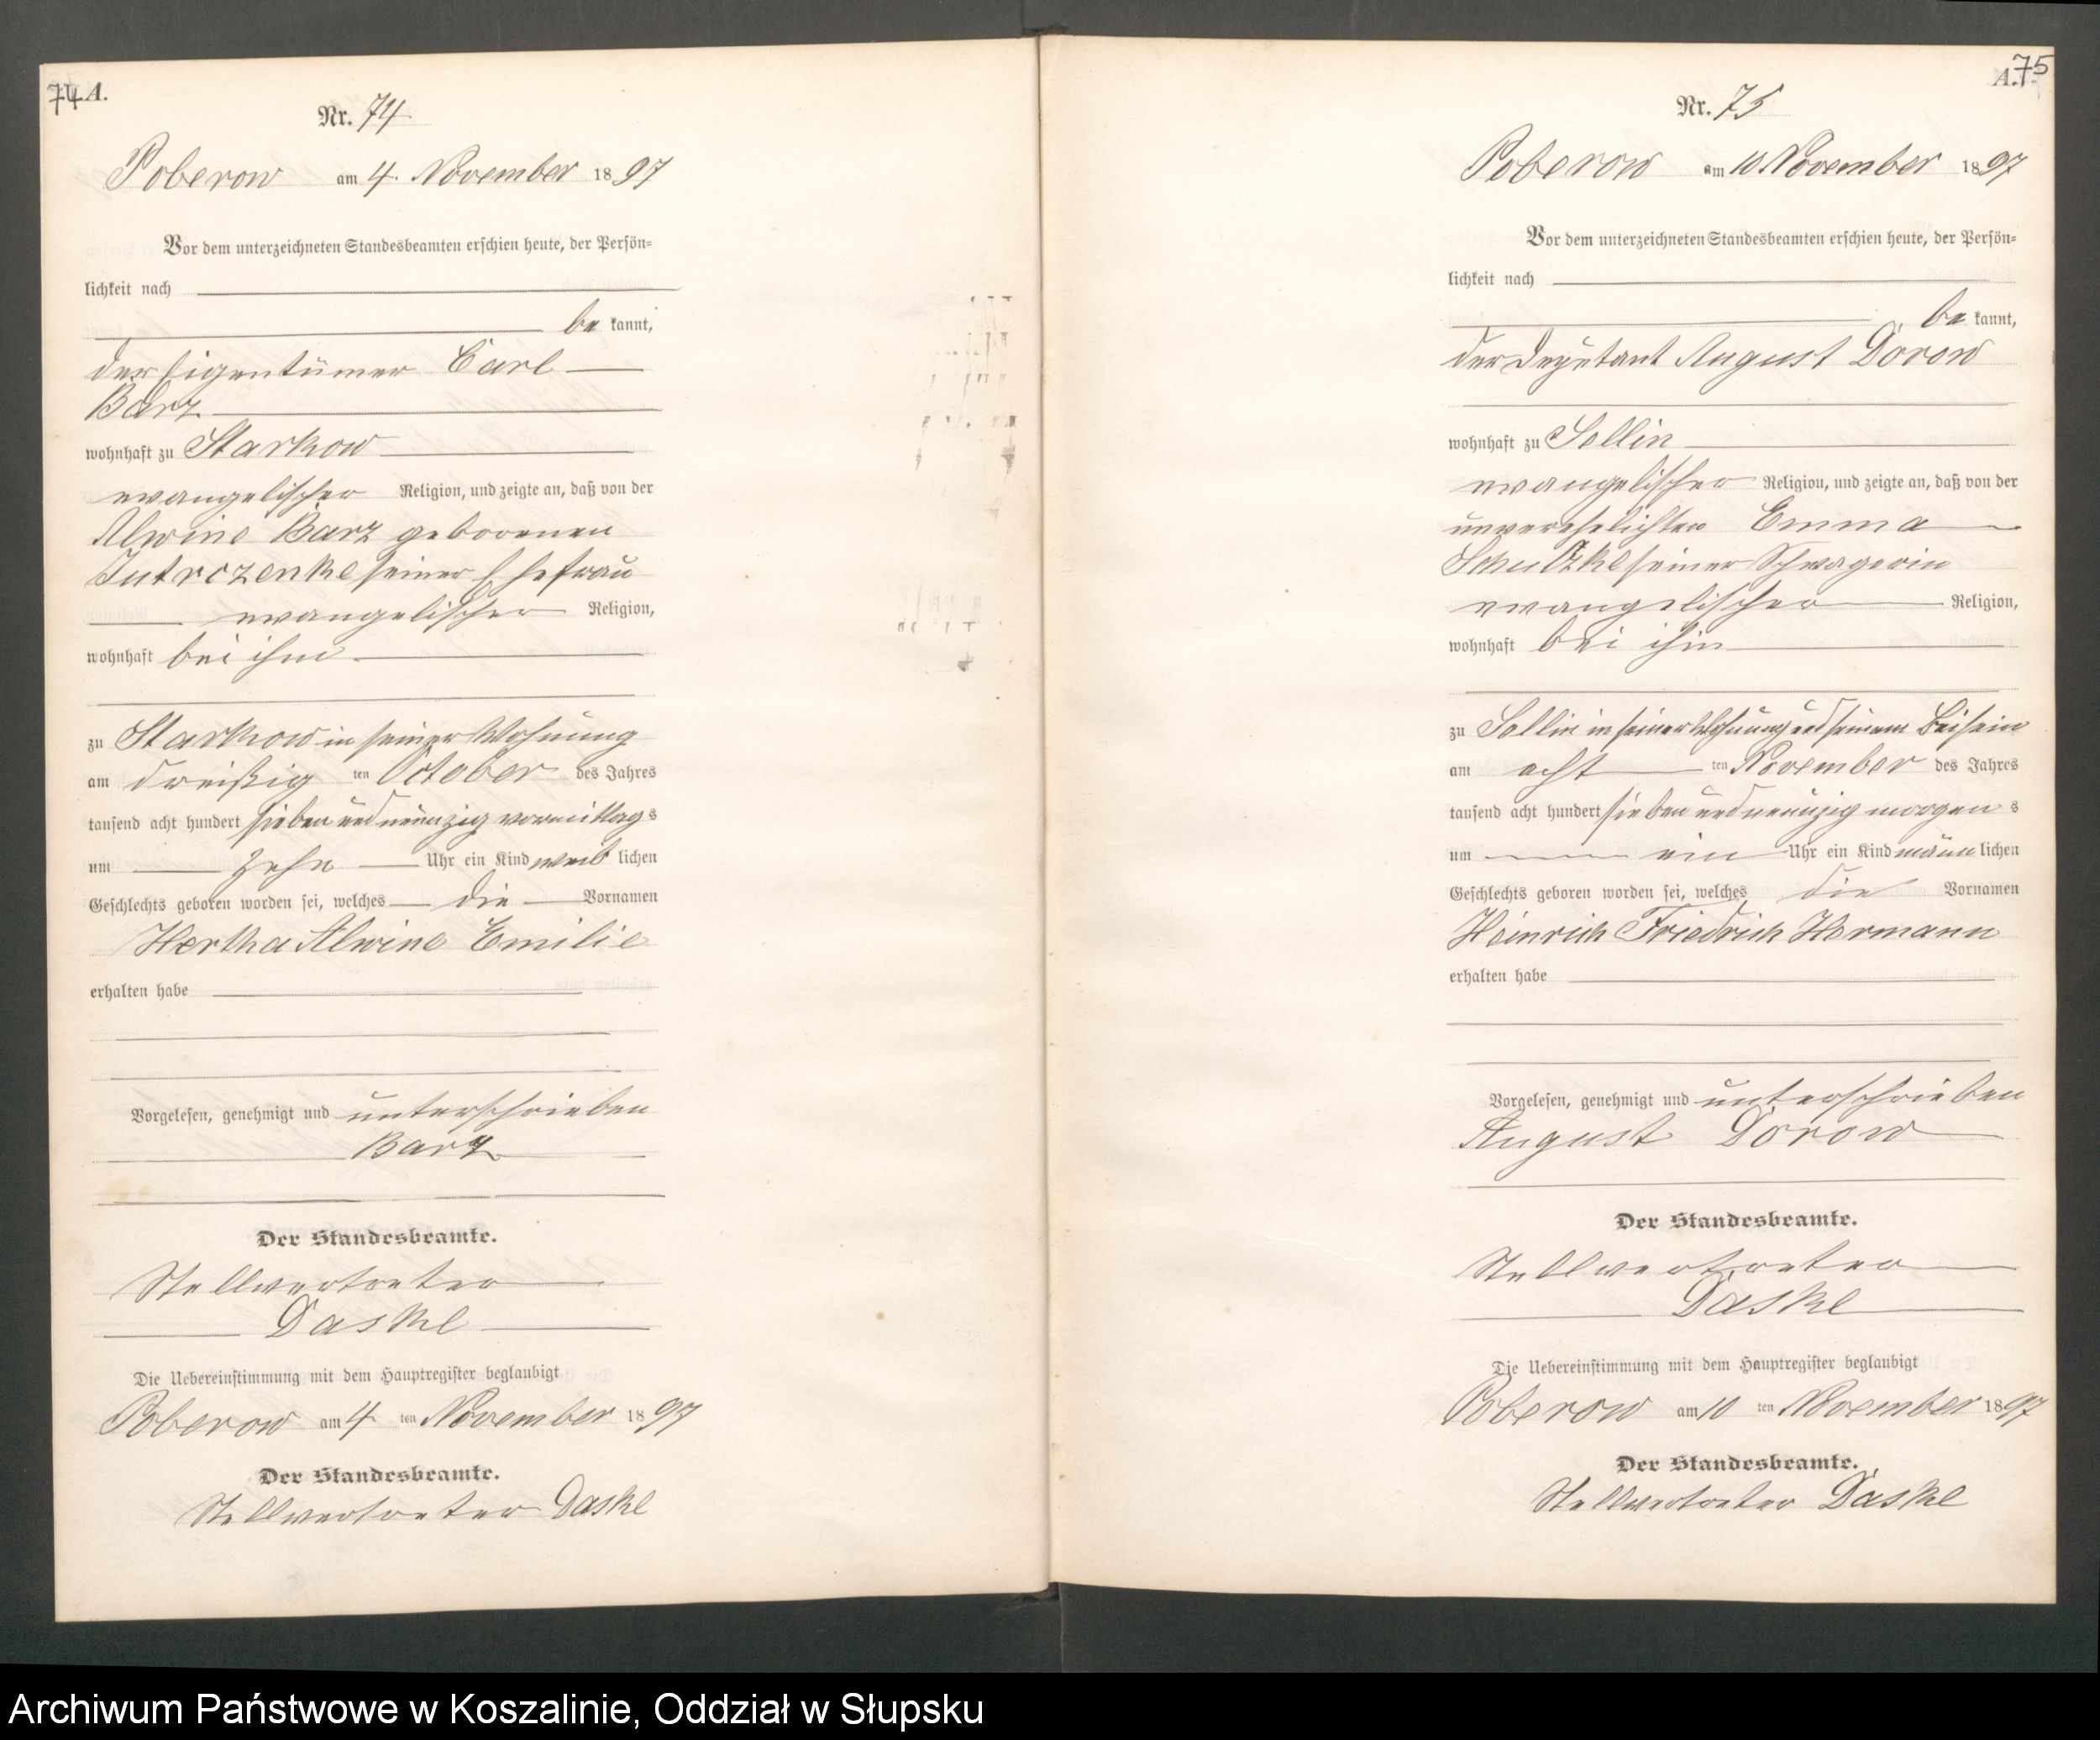 74 A.
Nr. 74
Poberow am 4. November 1897
Vor dem unterzeichneten Standesbeamten erschien heute, der Persön=
lichkeit nach
be kannt,
der Eigentümer Carl
Barz
wohnhaft zu Starkow
evangelischer Religion, und zeigte an, daß von der
Alwine Barz geborenen
seiner Ehefrau
evangelischer Religion,
wohnhaft bei ihm
zu Starkow in seiner Wohnung
am dreißig ten October des Jahres
tausend acht hundert sieben und neunzig vormittags
um zehn Uhr ein Kind weiblichen
Geschlechts geboren worden sei, welches die Vornamen
Hertha Alwine Emilie
erhalten habe
Vorgelesen, genehmigt und unterschrieben
Barz
Der Standesbeamte.
Stellvertreter
Daske
Die Uebereinstimmung mit dem Hauptregister beglaubigt
Poberow am 4. ten November 1897
Der Standesbeamte.
Stellvertreter Daske
A. 75
Nr. 75
Poberow am 10 November 1897
Vor dem unterzeichneten Standesbeamten erschien heute, der Persön=
lichkeit nach
be kannt,
der Deputant August Dorow
wohnhaft zu Sellin
evangelischer Religion, und zeigte an, daß von der
unverehelichten Emma
seiner Schwägerin
evangelischer Religion,
wohnhaft bei ihm
zu Sellin in seiner Wohnung und seinem Beisein
am acht ten November des Jahres
tausend acht hundert sieben und neunzig morgens
um ein Uhr ein Kind männlichen
Geschlechts geboren worden sei, welches die Vornamen
Heinrich Friedrich Hermann
erhalten habe
Vorgelesen, genehmigt und unterschrieben
August Dorow
Der Standesbeamte.
Stellvertreter
Daske
Die Uebereinstimmung mit dem Hauptregister beglaubigt
Poberow am 10 ten November 1897
Der Standesbeamte.
Stellvertreter Daske
Archiwum Państwowe w Koszalinie, Oddział w Słupsku